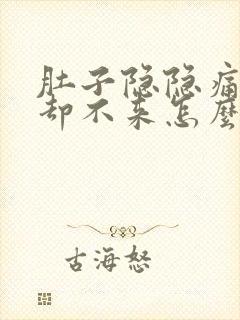 肚子隐隐痛
却不来怎麼
古海怒